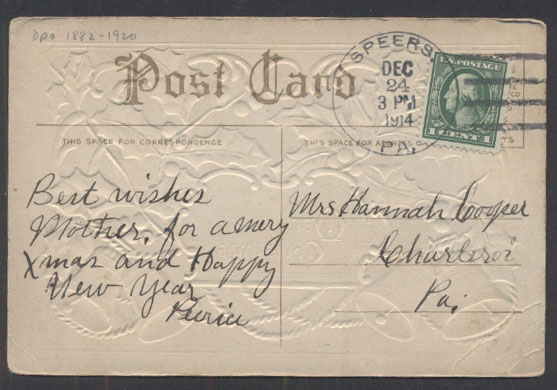 DPO 1882-1920
Post Card
SPEERS,
DEC
24
3 PM
1914
PA.
U.S. POSTAGE
1 CENT 1
THIS SPACE FOR CORRESPONDENCE
THIS SPACE FOR ADDRESS
Best wishes
Mother, for a mery
Xmas and Happy
New Year
Mrs Hannah Cooper
Charleroi
Pa.